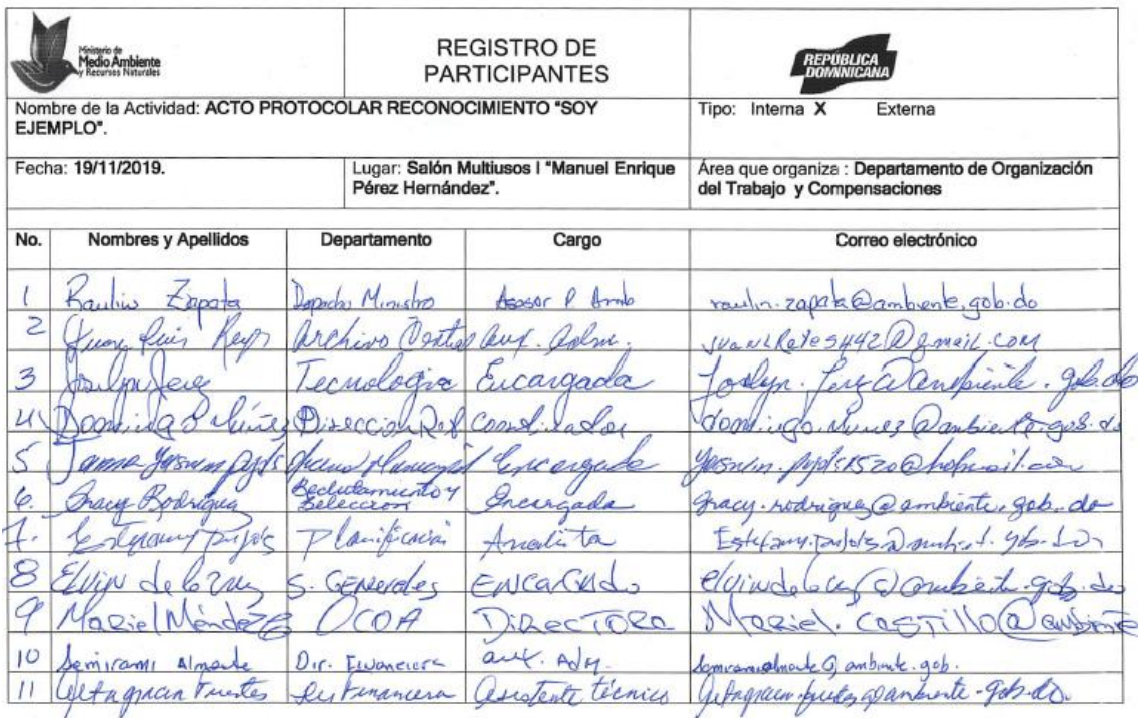 Ministerio de
Medio Ambiente
y Recursos Naturales
REGISTRO DE
PARTICIPANTES
REPÚBLICA
DOMINICANA
Nombre de la Actividad: ACTO PROTOCOLAR RECONOCIMIENTO "SOY
EJEMPLO".
Tipo: Interna X Externa
Fecha: 19/11/2019.
Lugar: Salón Multiusos I "Manuel Enrique
Pérez Hernández".
Área que organiza : Departamento de Organización
del Trabajo y Compensaciones
No. Nombres y Apellidos Departamento Cargo Correo electrónico
1 Raulin Zapata Despacho Ministro Asesor P Amb raulin.zapata@ambiente.gob.do
2 Juan Luis Reyes Archivo Central aux. adm. juanlReyes442@gmail.com
3 Tecnologia Encargada
4 Domingo Núñez Dirección Coordinador domingo.nunez@ambiente.gob.do
5 Yasmin Encargada
6. Gracy Rodriguez Reclutamiento y Selección Encargada gracy.rodriguez@ambiente.gob.do
7. Estefany Pujols Planificación Analista
8 Elvin de la Cruz S. Generales Encargado elvindelacruz@ambiente.gob.do
9 Mariel Méndez OCOA Directora Mariel.Castillo@ambiente
10 Semirami Almonte Dir. Financiera aux. Adm.
11 Altagracia Fuertes Financiera asistente técnico